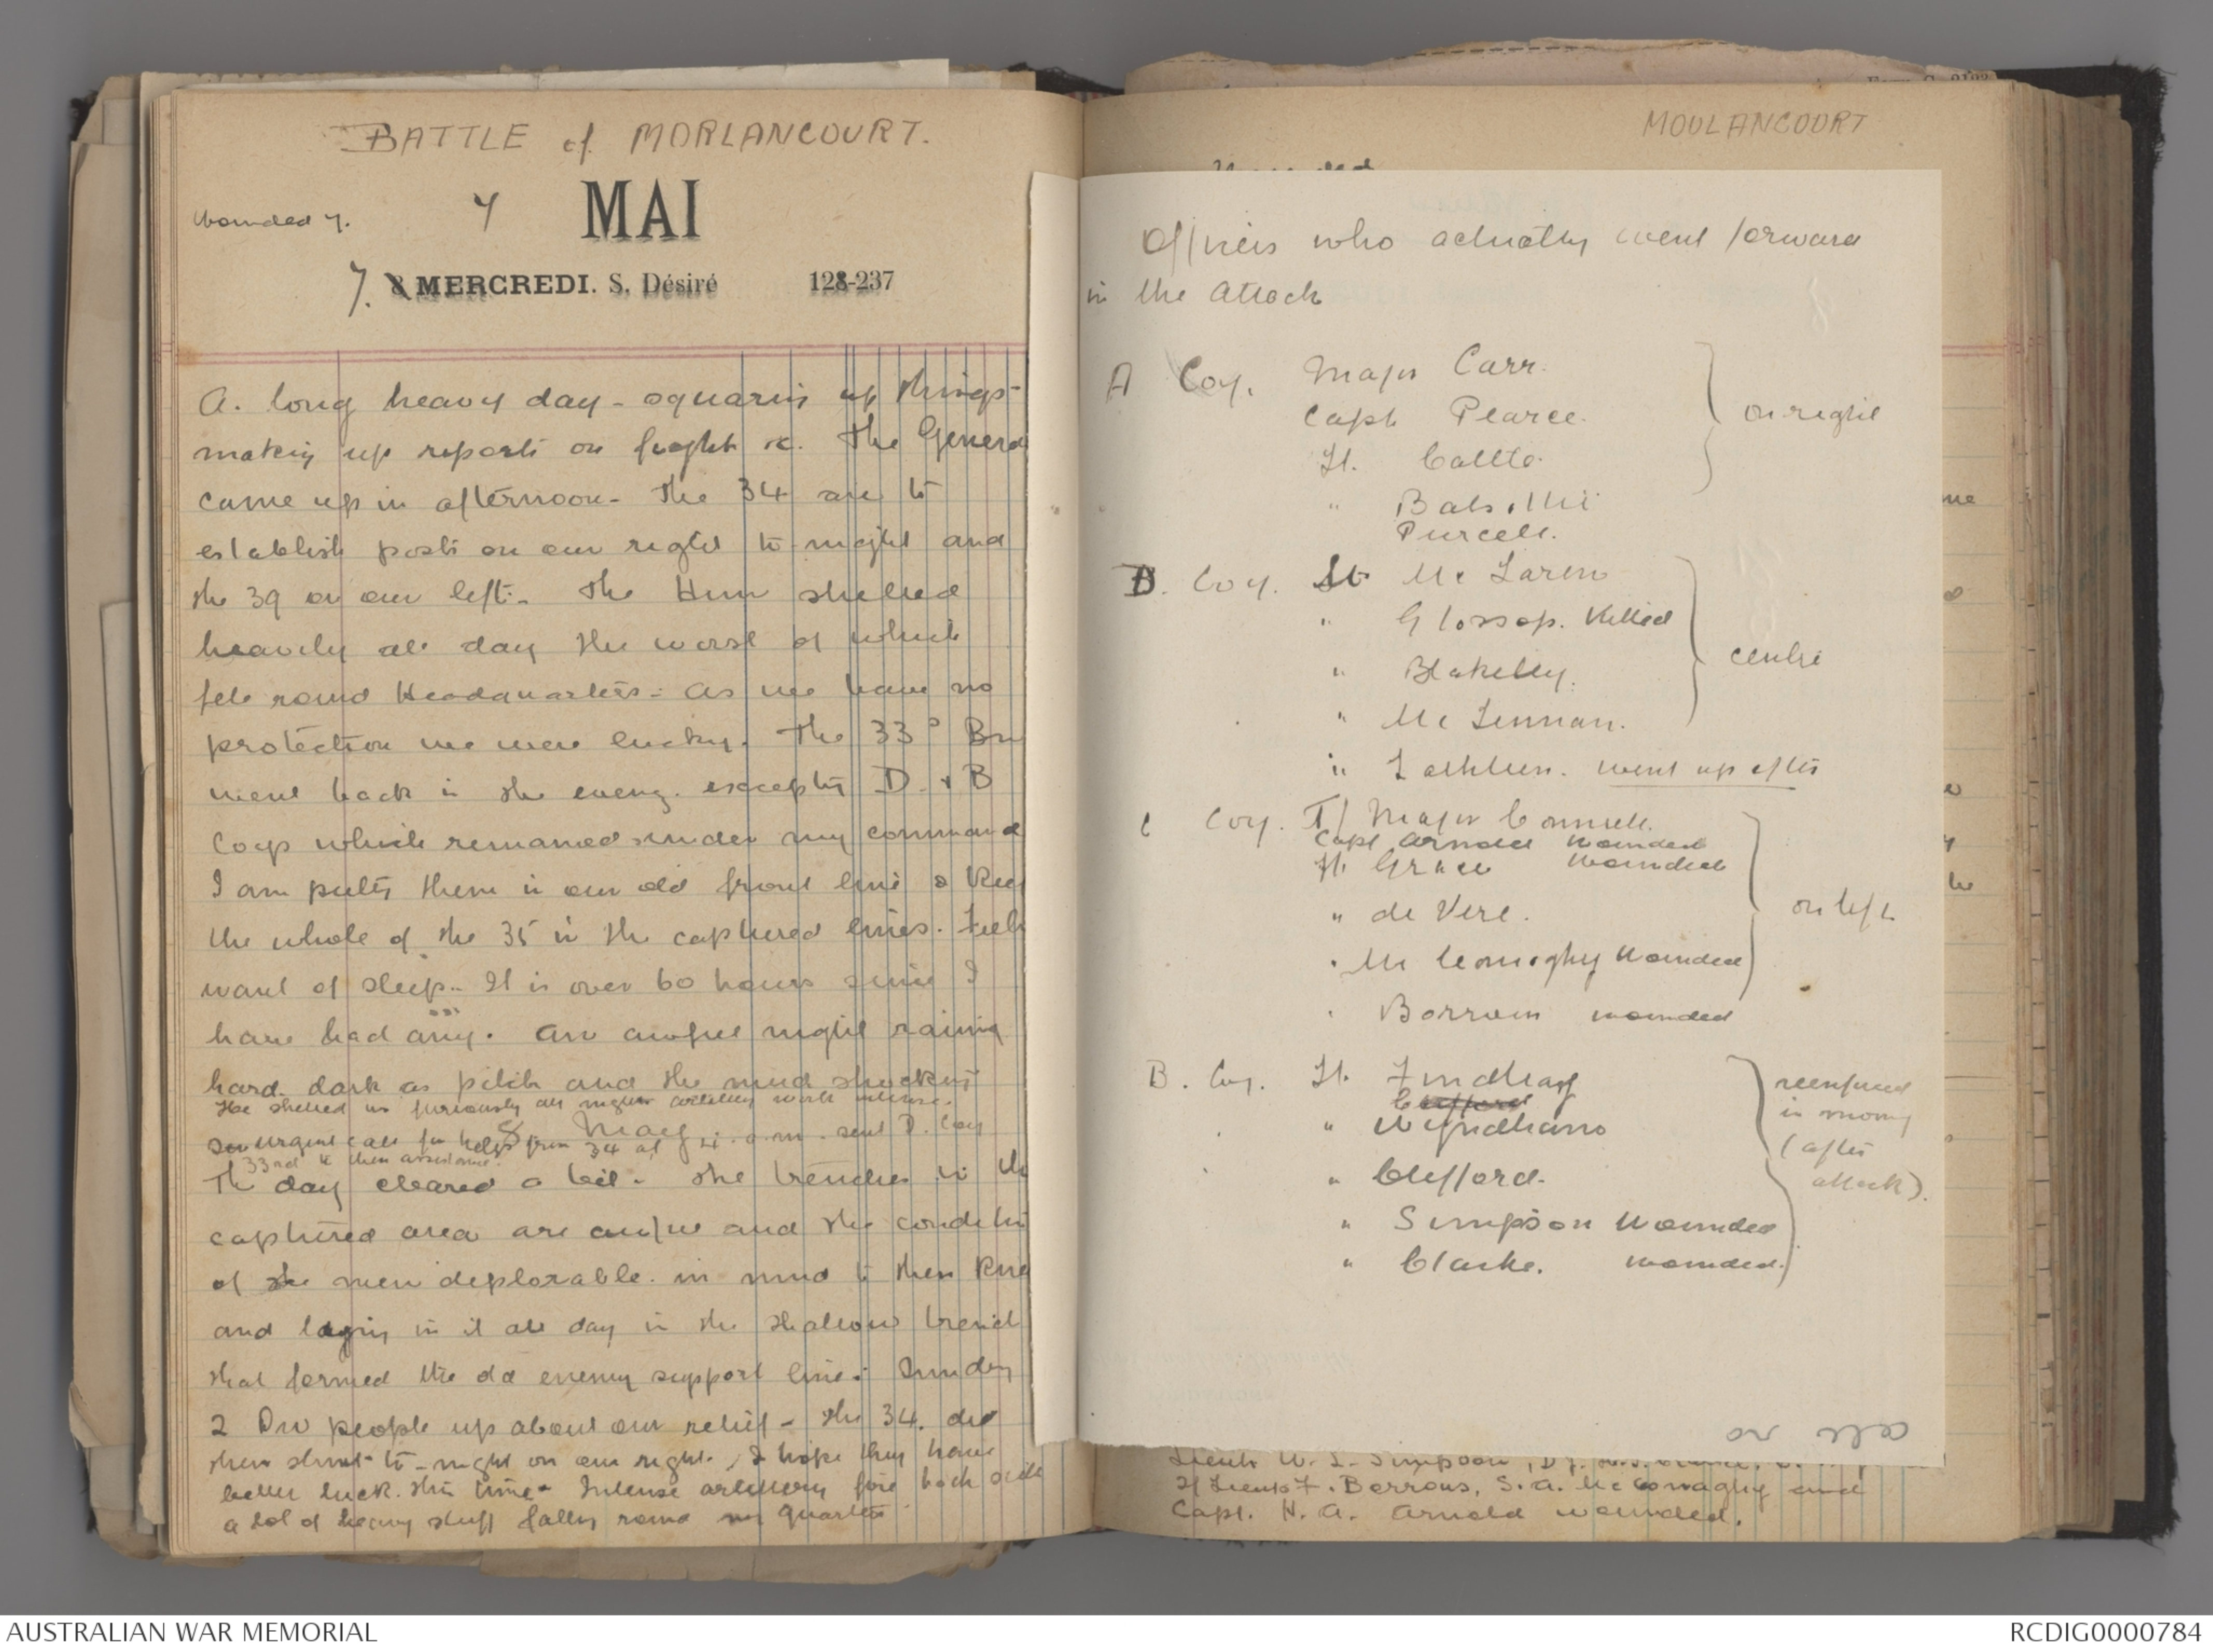 BATTLE of MORLANCOURT.
Wounded 7.
7 MAI
7. 8 MERCREDI. S. Désiré 128-237
A. long heavy day - squaring up things -
making up reports on fight &c. The General
came up in afternoon - The 34 are to
establish posts on our right to-night and
the 39 on our left. The Hun shelled
heavily all day the worst of which
fell round Headquarters - as we have no
protection we were lucky. The 33rd Bn
went back in the eveng. excepting D. & B
Coys which remained under my command
I am putting them in our old front line &
the whole of the 35 in the captured lines. Feeling
want of sleep. It is over 60 hours since I
have had any. An awful night raining
hard. dark as pitch and the mud shocking
He shelled us furiously all night artillery work intense.
8 May
urgent call for help from 34 at 4. a.m. sent D. Coy
33rd to their assistance.
The day cleared a bit. The trenches in the
captured area are awful and the condition
of the men deplorable. in mud to their knees
and laying in it all day in the shallow trench
that formed the old enemy support line. Sunday
2 Div people up about our relief - The 34. did
their stunt to-night on our right. I hope they have
better luck. this time. Intense artillery fire both sides
a lot of heavy stuff falling round my quarters
MOULANCOURT
Officers who actually went forward
in the Attack
A Coy. Major Carr.
Capt Pearce.
Lt. Callto.
" Balsillie
Purcell.
on right
D. Coy. Lt Mc Laren
" Glossop. Killed
" Blakelly.
" Mc Lennan.
" Lathlen. went up after
centre
C Coy. T/ Major Connell.
Capt Arnold wounded
Lt. Grace wounded
" de Vere.
" Mc Conaghy Wounded
" Borrow wounded
on left
B. Coy. Lt. Findlay
Clifford
" Wyndham
" Clifford.
" Simpson Wounded
" Clarke. wounded.
reenforced
in morng
(after
attack).
Lieut. W. L. Simpson,
2/ Lieuts F. Borrows, S. A. Mc Conaghy and
Capt. H. A. Arnold wounded.
AUSTRALIAN WAR MEMORIAL
RCDIG0000784